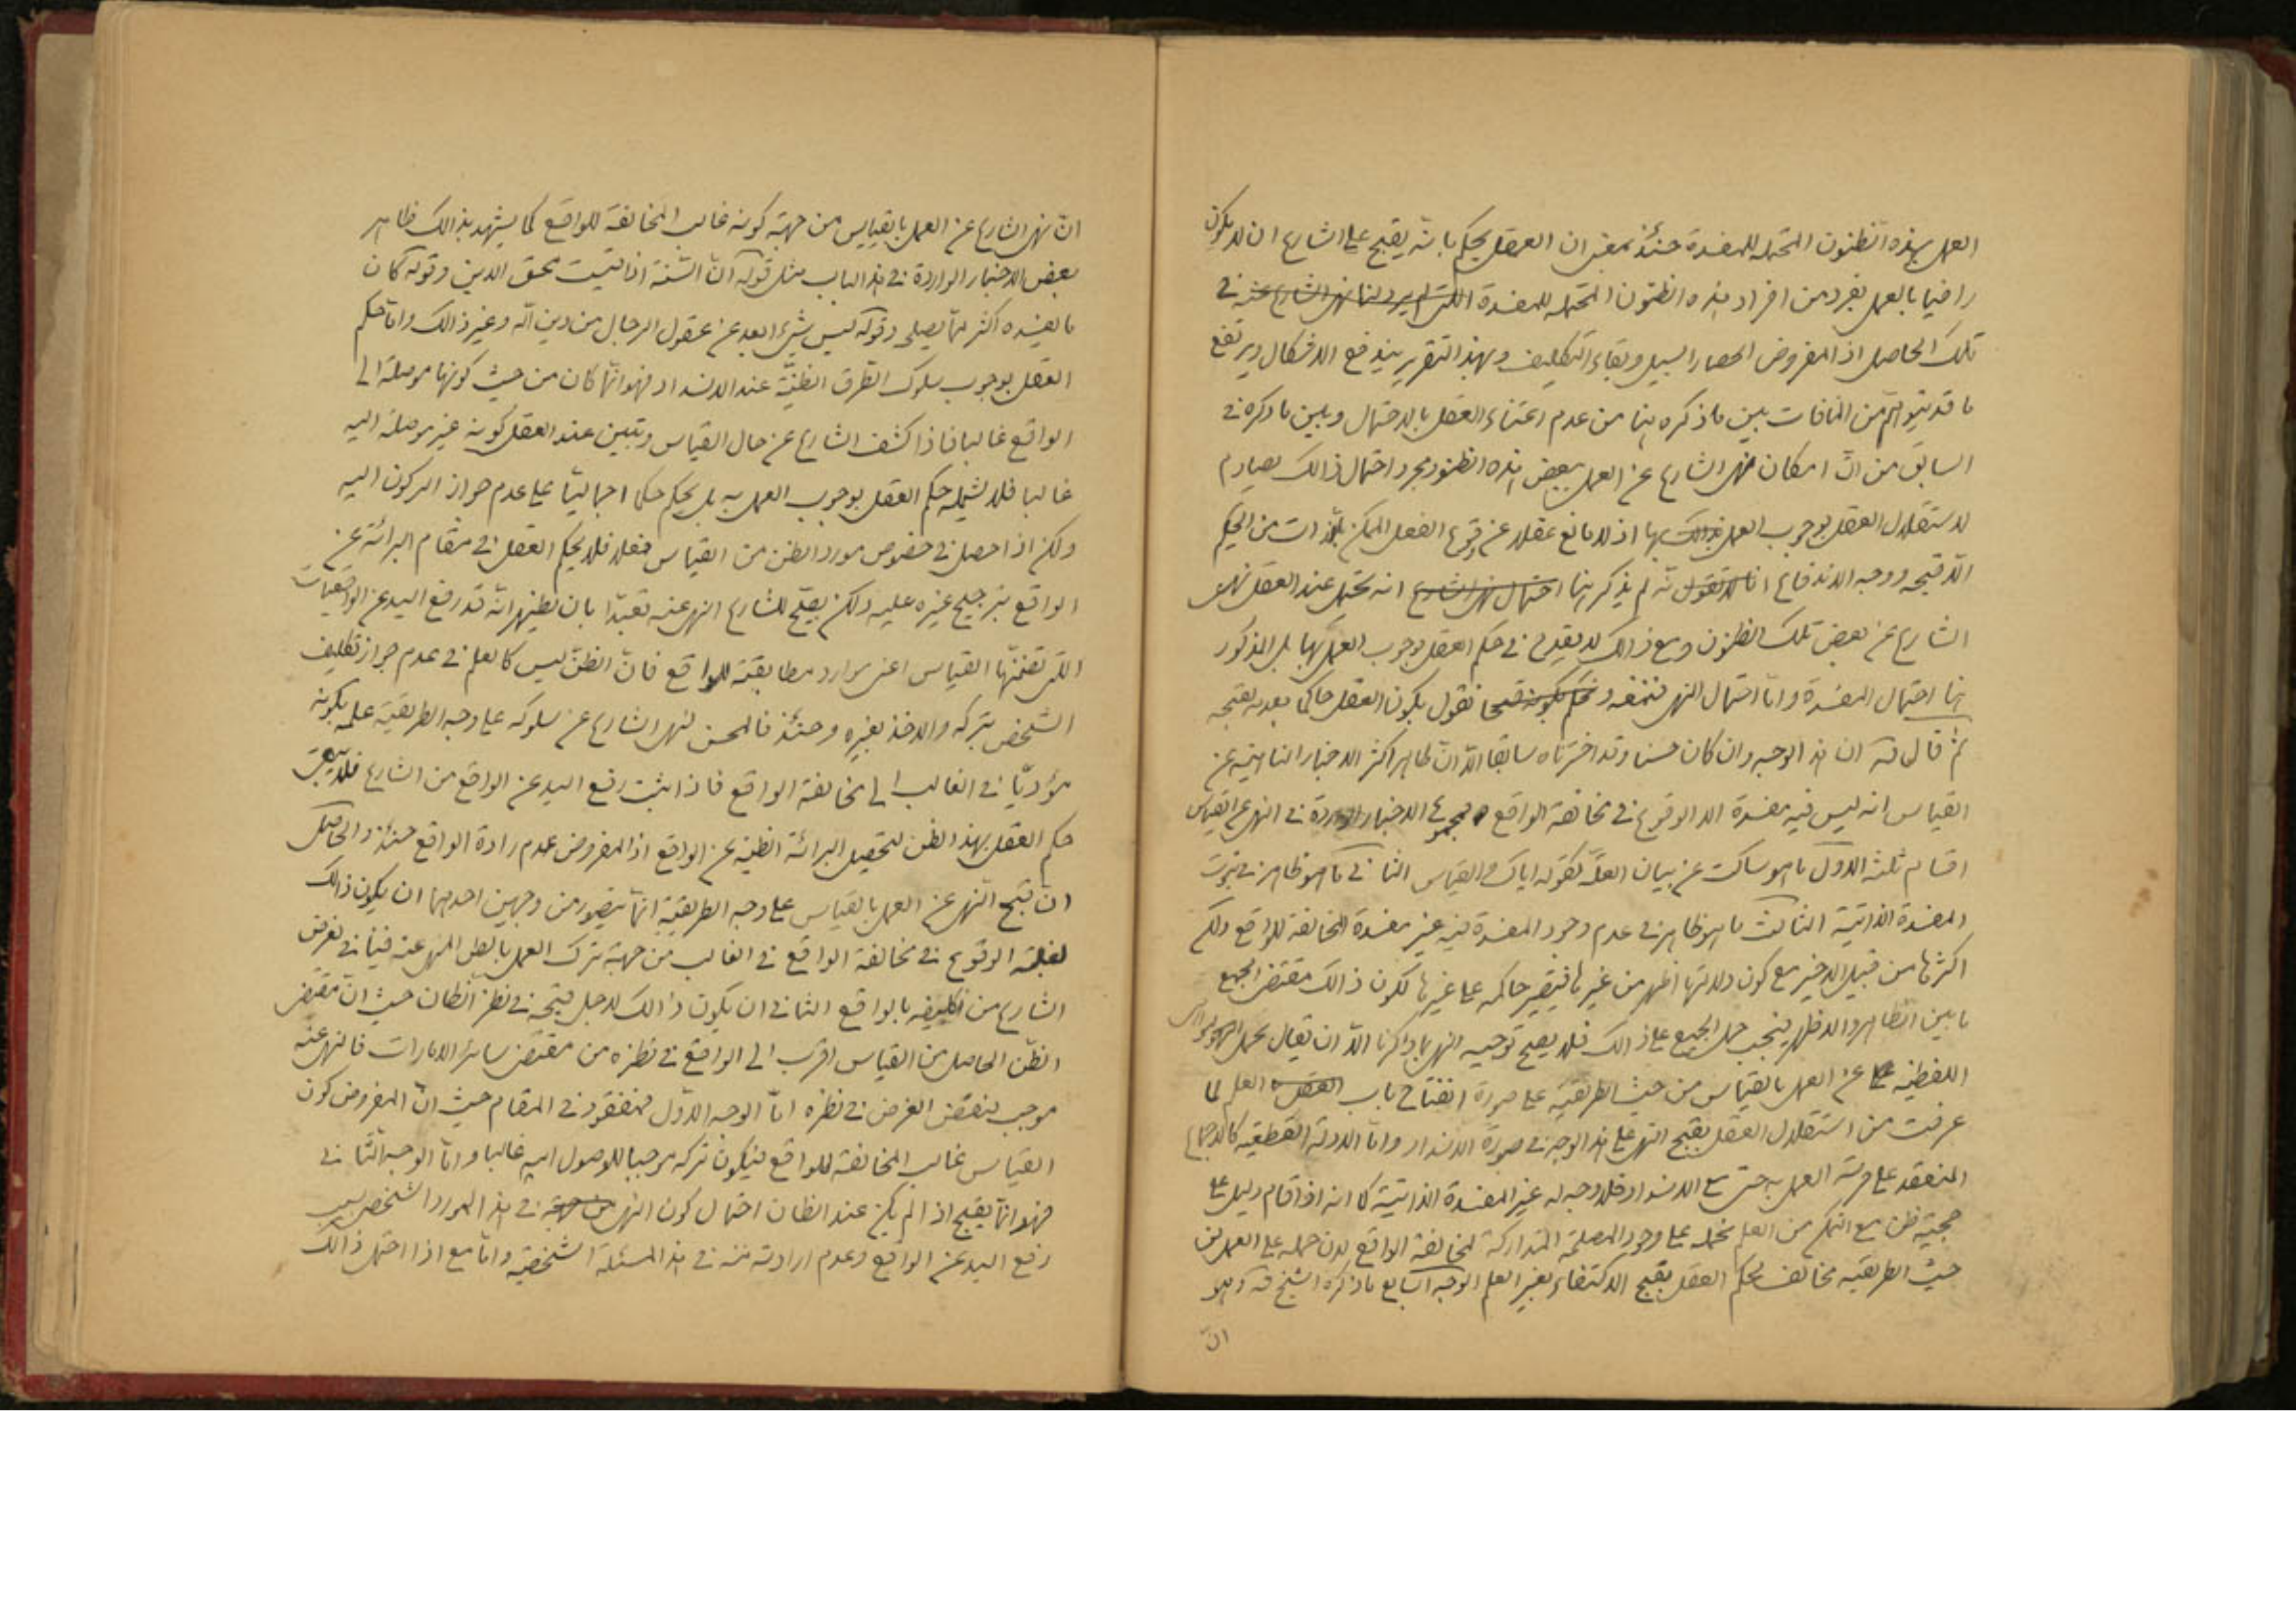 العمل بهذه الظنون المحتمله للمفسدة حينئذ بمعنى ان العقل يحكم بانه يقبح على الشارع ان لا يكون
راضيا بالعمل بفرد من افراد هذه الظنون المحتمله للمفسدة اللتى لم يرد لنا نهى الشارع عنه فى
تلك الحاصل اذ المفروض انحصار السبيل وبقاء التكليف وبهذا التقرير يندفع الاشكال ويرتفع
ما قد يتوهم من المنافات بين ما ذكره هنا من عدم اعتناء العقل بالاحتمال وبين ما ذكره فى
السابق من انّ امكان نهى الشارع عن العمل ببعض هذه الظنون ومجرد احتمال ذالك يصادم
لاستقلال العقل بوجوب العمل بذالك بها اذ لا مانع عقلا عن وقوع الفعل الممكن بالذات من الحكيم
الّا قبحه ووجه الاندفاع انا لا نقول انّه لم يذكر هنا احتمال نهى الشارع انه يحتمل عند العقل نهى
الشارع عن بعض تلك الظنون ومع ذالك لا يقدح فى حكم العقل بوجوب العمل بها بل المذكور
هنا احتمال المفسدة وامّا احتمال النهى فننفيه ونحكم بكونه قبيحا فنقول بكون العقل حاكما بعدمه لقبحه
ثمّ قال قه ان هذا الوجه وان كان حسنا وقد اخترناه سابقا الّا انّ ظاهر اكثر الاخبار الناهية عن
القياس انه ليس فيه مفسدة الا الوقوع فى مخالفة الواقع و مجموع الاخبار الواردة فى النهى عن القياس
اقسام ثلثة الاول ما هو ساكت عن بيان العلّة كقوله اياك والقياس الثانى ما هو ظاهر فى ثبوت
المفسدة الذاتيّة الثالث ما هو ظاهر فى عدم وجود المفسدة فيه غير مفسدة المخالفة للواقع ولكن
اكثرها من قبيل الاخير مع كون دلالتها اظهر من غيرها فتصير حاكمه على غيرها لكون ذالك مقتضى الجمع
ما بين الظاهر والاظهر فيجب حمل الجميع على ذالك فلا يصح توجيه النهى بما ذكرنا الّا ان يقال بحمل النواهى
اللفظيّه عن العمل بالقياس من حيث الطريقيّه على صورة انفتاح باب العقل العلم لما
عرفت من استقلال العقل بقبح النهى على هذا الوجه فى صورة الانسداد وامّا الادلّة القطعيّه كالاجماع
المنعقد على حرمة العمل به حتى مع الانسداد فلا وجه له غير المفسدة الذاتيّة كما انه اذا قام دليل على
حجيّة ظن مع التمكن من العلم نحمله على وجود المصلحة المتداركة لمخالفة الواقع لان حمله على العمل من
حيث الطريقيه مخالف لحكم العقل بقبح الاكتفاء بغير العلم الوجه السابع ما ذكره الشيخ قه وهو
انّ
انّ نهى الشارع عن العمل بالقياس من جهة كونه غالب المخالفة للواقع كما يشهد بذالك ظاهر
بعض الاخبار الواردة فى هذا الباب مثل قوله انّ السّنة اذا قيست محق الدين وقوله كان
ما يفسده اكثر ممّا يصلح وقوله ليس شئ ابعد عن عقول الرجال من دين الله وغير ذالك وامّا حكم
العقل بوجوب سلوك الطرق الظنيّة عند الانسداد فهو انّما كان من حيث كونها موصلة الى
الواقع غالبا فاذا كشف الشارع عن حال القياس وتبين عند العقل كونه غير موصلة اليه
غالبا فلا يشمله حكم العقل بوجوب العمل به بل يحكم حكما اجماليّا على عدم جواز الركون اليه
ولكن اذا حصل فى خصوص مورد الظن من القياس فعلا فلا يحكم العقل فى مقام البرائة عن
الواقع بترجيح غيره عليه ولكن يصحّ للشارع النهى عنه تعبّدا بان يظهر انّه قد رفع اليد عن الواقعيّات
اللتى تضمّنها القياس اعنى موارد مطابقته للواقع فانّ الظنّ ليس كالعلم فى عدم جواز تكليف
الشخص بتركه والاخذ بغيره وحينئذ فالمحسن لنهى الشارع عن سلوكه على وجه الطريقيّة علمه بكونه
مؤدّيا فى الغالب الى مخالفة الواقع فاذا ثبت رفع اليد عن الواقع من الشارع فلا يبقى
حكم العقل بهذا الظن لتحصيل البرائة الظنيّه عن الواقع اذ المفروض عدم ارادة الواقع حينئذ والحاصل
انّ قبح النّهى عن العمل بالقياس على وجه الطريقيّة انّما يتصور من وجهين احدهما ان يكون ذالك
لغلبة الوقوع فى مخالفة الواقع فى الغالب من جهة ترك العمل بالظن المنهى عنه فينافى لغرض
الشارع من تكليفه بالواقع الثانى ان يكون ذالك لاجل قبحه فى نظر الظّان حيث انّ مقتضى
الظّن الحاصل من القياس اقرب الى الواقع فى نظره من مقتضى سائر الامارات فالنهى عنه
موجب لنقض الغرض فى نظره امّا الوجه الاوّل فمفقود فى المقام حيث انّ المفروض كون
القياس غالب المخالفة للواقع فيكون تركه موجبا للوصول اليه غالبا وامّا الوجه الثّانى
فهو انّما يقبح اذا لم يكن عند الظان احتمال كون النهى من جهة فى هذا المورد الشخصى بسبب
رفع اليد عن الواقع وعدم ارادته منه فى هذا المسئلة الشخصيّه وامّا مع اذا احتمل ذالك